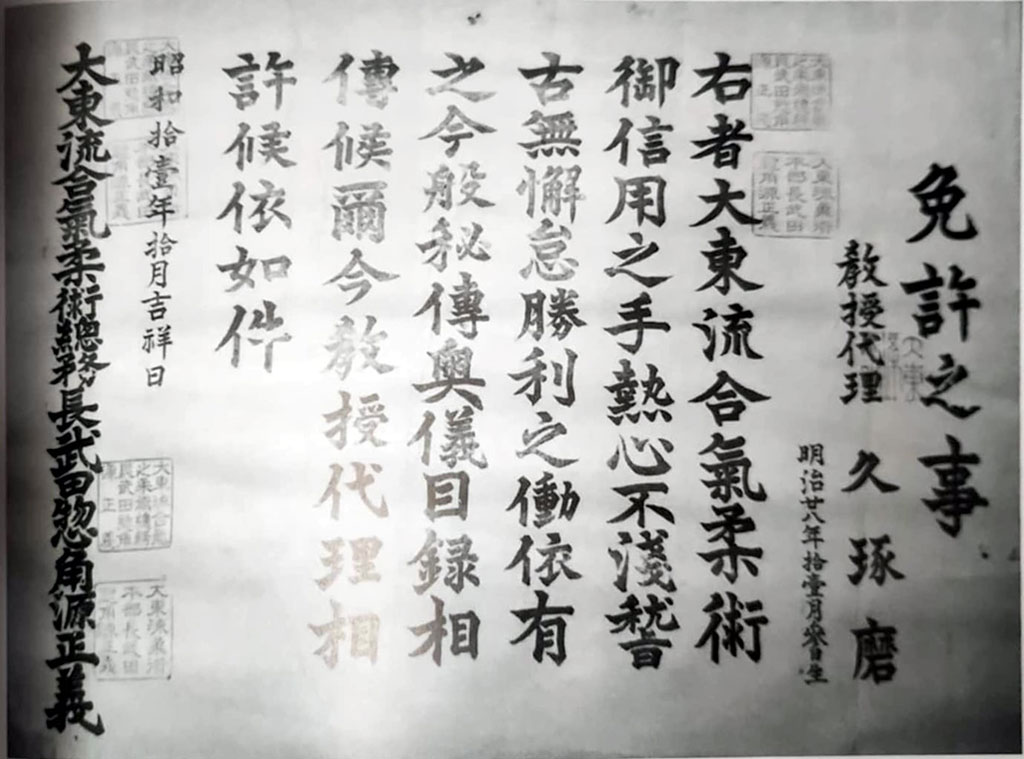 免許之事
教授代理 久琢磨
明治廿八年拾壹月參日生
右者大東流合氣柔術
御信用之手熱心不淺稽
古無懈怠勝利之働依有
之今般秘傳奥儀目録相
傳候爾今教授代理相
許候依如件
昭和拾壹年拾月吉祥日
大東流合氣柔術總務長武田惣角源正義